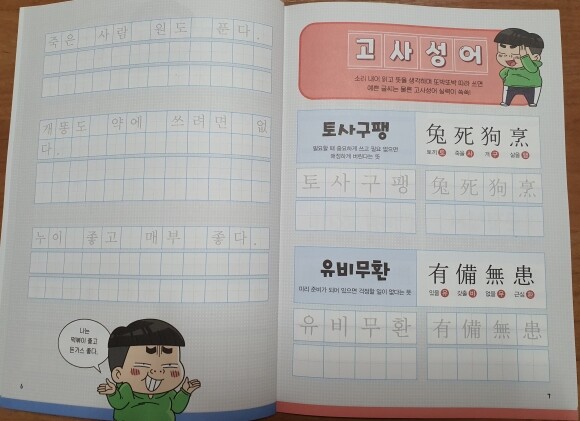 죽은 사람 원도 푼다.
개똥도 약에 쓰려면 없
다.
누이 좋고 매부 좋다.
나는
떡볶이 좋고
돈가스 좋다.
6
고사성어
소리 내어 읽고 뜻을 생각하며 또박또박 따라 쓰면
예쁜 글씨는 물론 고사성어 실력이 쑥쑥!
토사구팽
필요할 때 중요하게 쓰고 필요 없으면
매정하게 버린다는 뜻
兔死狗烹
토끼 토 죽을 사 개 구 삶을 팽
토사구팽 兔死狗烹
유비무환
미리 준비가 되어 있으면 걱정할 일이 없다는 뜻
有備無患
있을 유 갖출 비 없을 무 근심 환
유비무환 有備無患
7